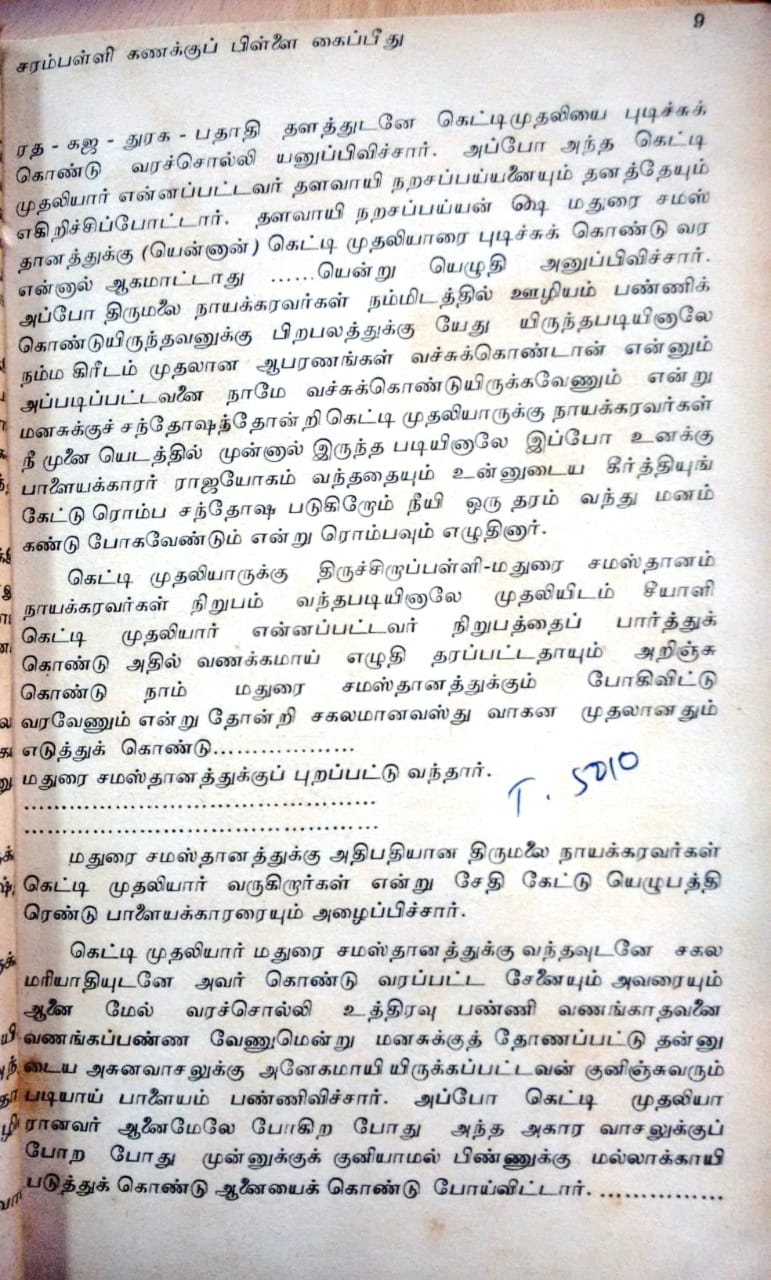 9
சரம்பள்ளி கணக்குப் பிள்ளை கைப்பீது
ரத - கஜ - துரக - பதாதி தளத்துடனே கெட்டிமுதலியை புடிச்சுக்
கொண்டு வரச்சொல்லி யனுப்பிவிச்சார். அப்போ அந்த கெட்டி
முதலியார் என்னப்பட்டவர் தளவாயி நறசப்பய்யனையும் தனத்தேயும்
எகிறிச்சிப்போட்டார். தளவாயி நறசப்பய்யன் ௸ மதுரை சமஸ்
தானத்துக்கு (யென்னான்) கெட்டி முதலியாரை புடிச்சுக் கொண்டு வர
என்னால் ஆகமாட்டாது ......யென்று யெழுதி அனுப்பிவிச்சார்.
அப்போ திருமலை நாயக்கரவர்கள் நம்மிடத்தில் ஊழியம் பண்ணிக்
கொண்டுயிருந்தவனுக்கு பிறபலத்துக்கு யேது யிருந்தபடியினாலே
நம்ம கிரீடம் முதலான ஆபரணங்கள் வச்சுக்கொண்டான் என்னும்
அப்படிப்பட்டவனை நாமே வச்சுக்கொண்டுயிருக்கவேணும் என்று
மனசுக்குச் சந்தோஷந்தோன்றி கெட்டி முதலியாருக்கு நாயக்கரவர்கள்
நீ முனை யெடத்தில் முன்னால் இருந்த படியினாலே இப்போ உனக்கு
பாளையக்காரர் ராஜயோகம் வந்ததையும் உன்னுடைய கீர்த்தியுங்
கேட்டு ரொம்ப சந்தோஷ படுகிறோம் நீயி ஒரு தரம் வந்து மனம்
கண்டு போகவேண்டும் என்று ரொம்பவும் எழுதினார்.
கெட்டி முதலியாருக்கு திருச்சிறாப்பள்ளி-மதுரை சமஸ்தானம்
நாயக்கரவர்கள் நிறுபம் வந்தபடியினாலே முதலியிடம் சீயாளி
கெட்டி முதலியார் என்னப்பட்டவர் நிறுபத்தைப் பார்த்துக்
கொண்டு அதில் வணக்கமாய் எழுதி தரப்பட்டதாயும் அறிஞ்சு
கொண்டு நாம் மதுரை சமஸ்தானத்துக்கும் போகிவிட்டு
வரவேணும் என்று தோன்றி சகலமானவஸ்து வாகன முதலானதும்
எடுத்துக் கொண்டு..................
மதுரை சமஸ்தானத்துக்குப் புறப்பட்டு வந்தார்.
T. 5010
.............................................
.............................................
மதுரை சமஸ்தானத்துக்கு அதிபதியான திருமலை நாயக்கரவர்கள்
கெட்டி முதலியார் வருகிறார்கள் என்று சேதி கேட்டு யெழுபத்தி
ரெண்டு பாளையக்காரரையும் அழைப்பிச்சார்.
கெட்டி முதலியார் மதுரை சமஸ்தானத்துக்கு வந்தவுடனே சகல
மரியாதியுடனே அவர் கொண்டு வரப்பட்ட சேனையும் அவரையும்
ஆனை மேல் வரச்சொல்லி உத்திரவு பண்ணி வணங்காதவனை
வணங்கப்பண்ண வேணுமென்று மனசுக்குத் தோணப்பட்டு தன்னு
டைய அசுனவாசலுக்கு அனேகமாயி யிருக்கப்பட்டவன் குனிஞ்சுவரும்
படியாய் பாளையம் பண்ணிவிச்சார். அப்போ கெட்டி முதலியா
ரானவர் ஆனைமேலே போகிற போது அந்த அகார வாசலுக்குப்
போற போது முன்னுக்குக் குனியாமல் பிண்ணுக்கு மல்லாக்காயி
படுத்துக் கொண்டு ஆனையைக் கொண்டு போய்விட்டார். ................